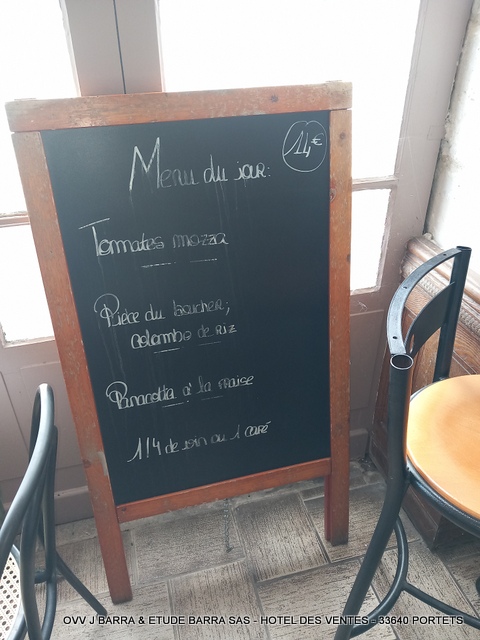 Menu du jour:
14€
Tomates mozza
Pièce du boucher;
Colombo de riz
Panacotta à la
1/4 de vin ou 1 café
OVV J BARRA & ETUDE BARRA SAS - HOTEL DES VENTES - 33640 PORTETS